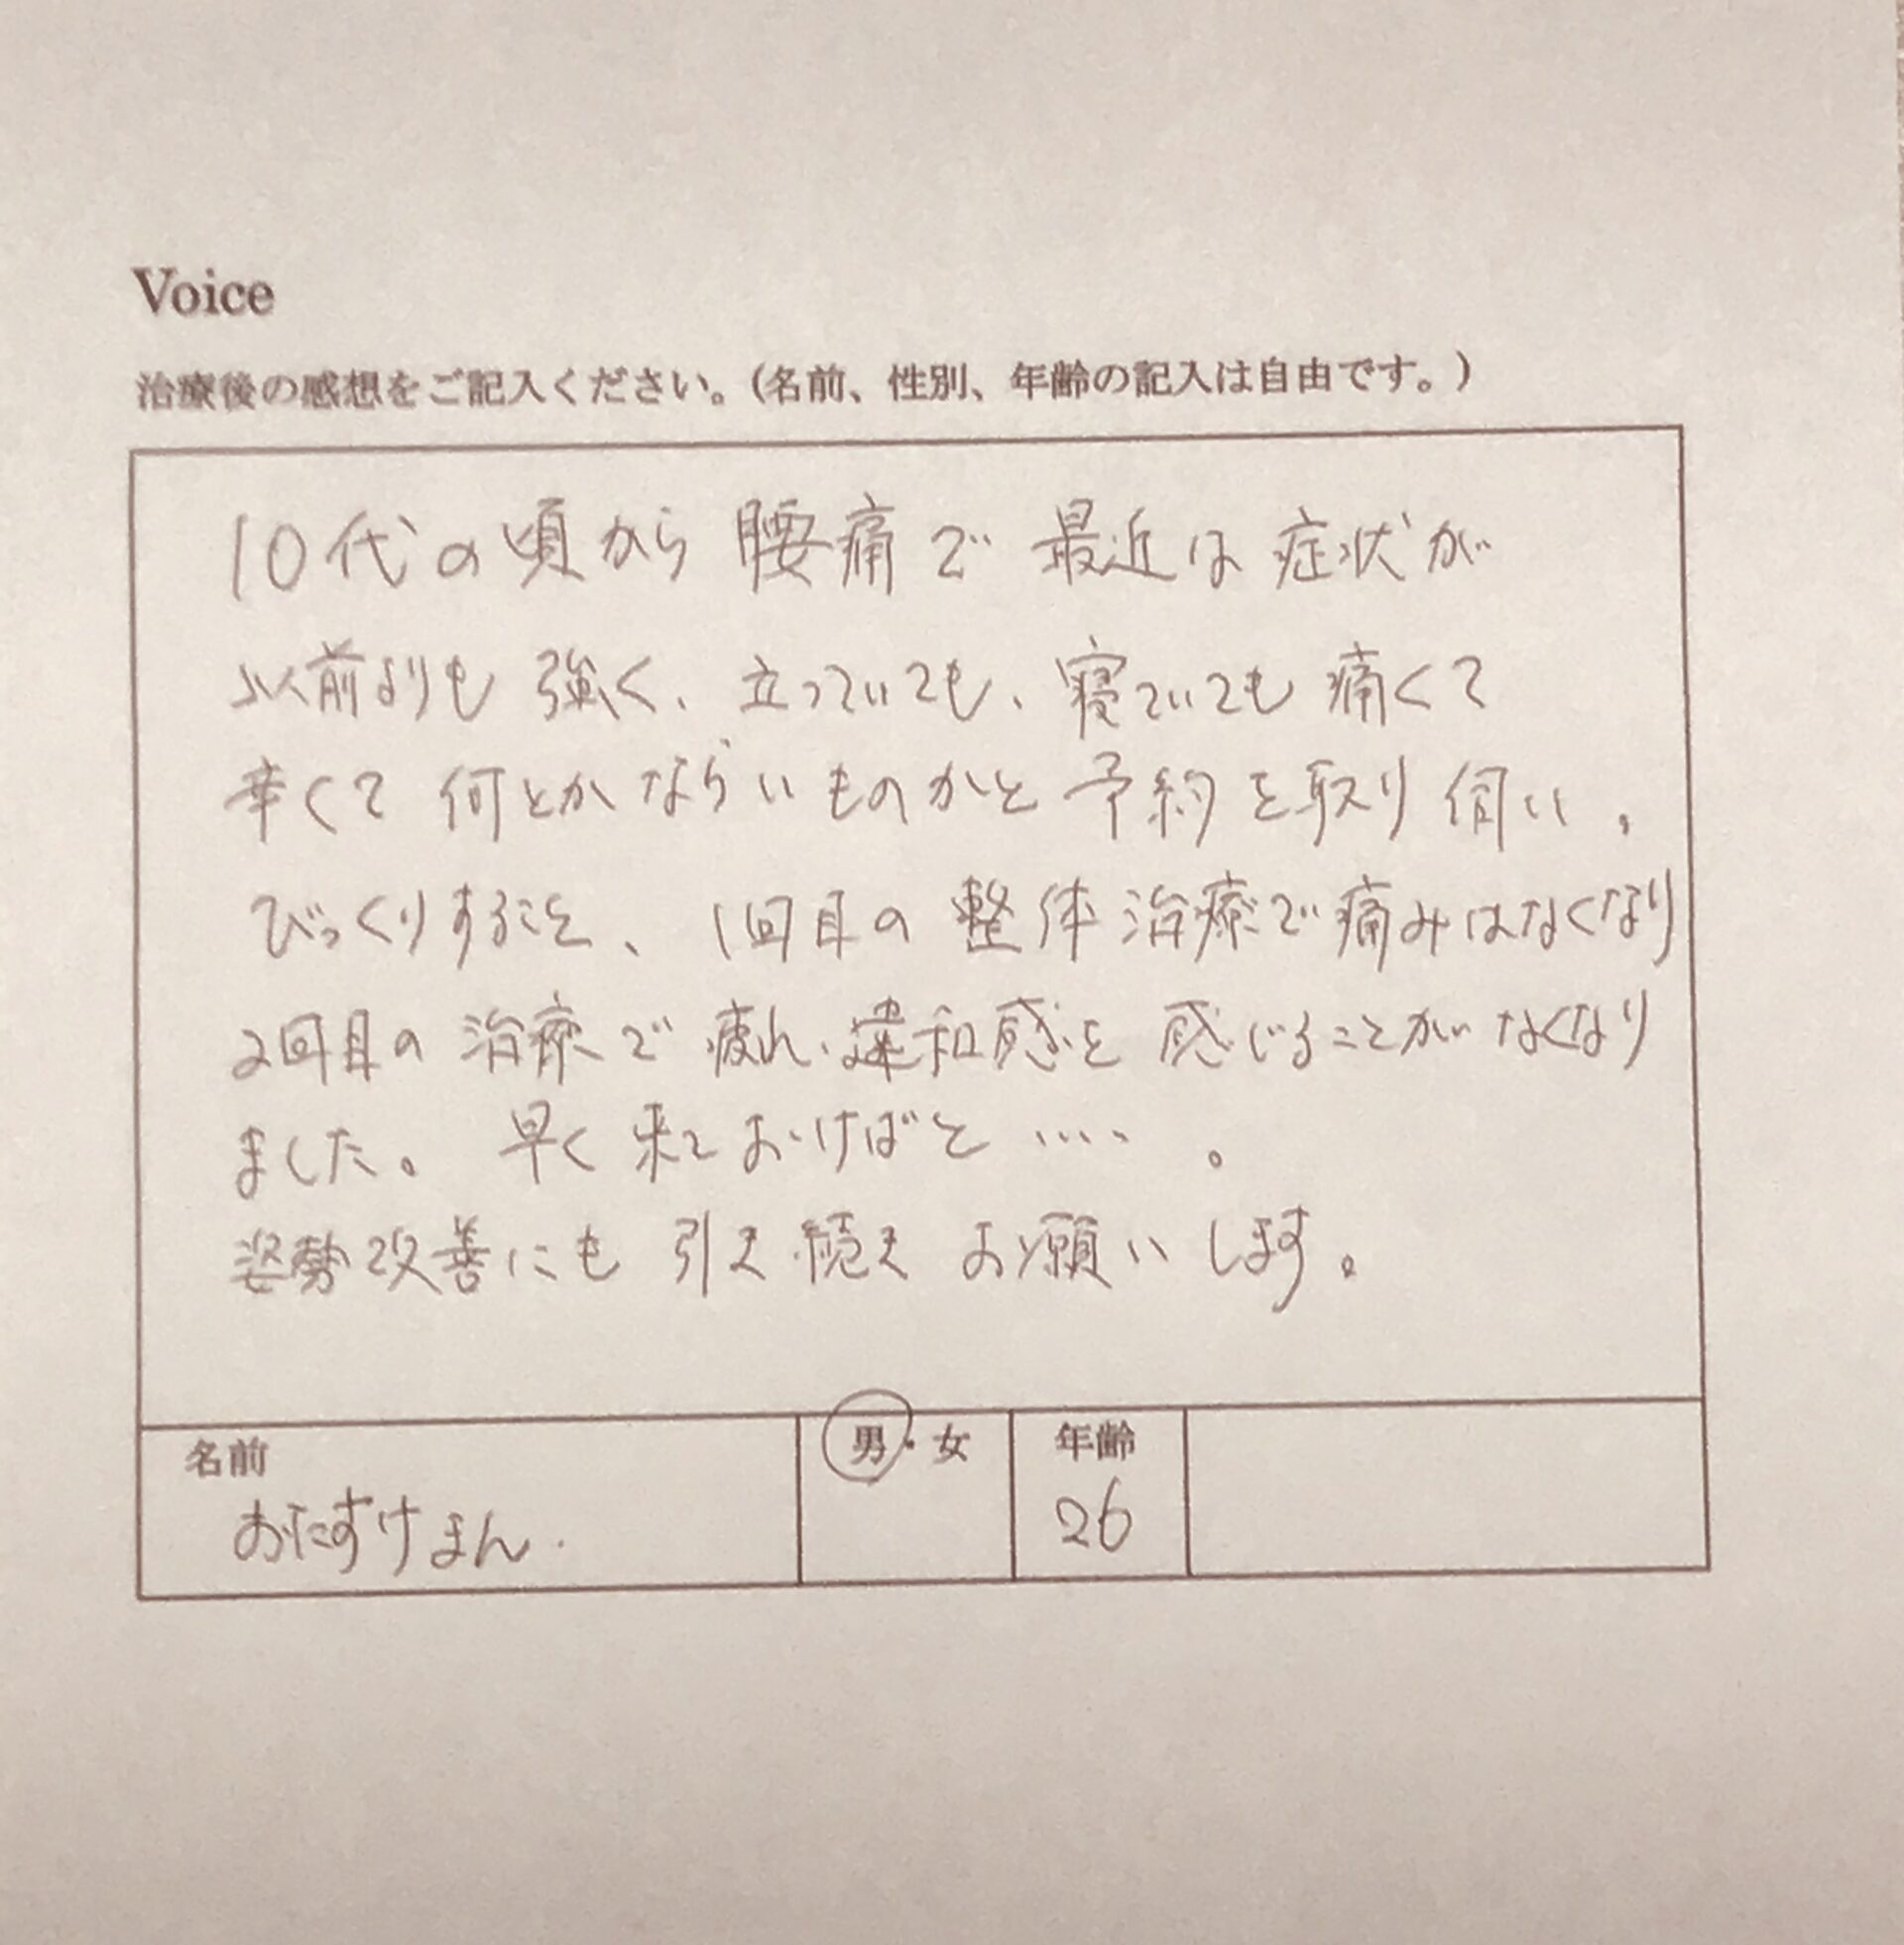 Voice
治療後の感想をご記入ください。(名前、性別、年齢の記入は自由です。)
10代の頃から腰痛で最近は症状が
以前よりも強く、立っていても、寝ていても痛くて
辛くて何とかならいものかと予約を取り伺い、
びっくりすることを、1回目の整体治療で痛みはなくなり
2回目の治療で疲れ、違和感を感じることがなくなり
ました。早く来ておけばと…。
姿勢改善にも引き続きお願いします。
名前 男・女 年齢
おたすけまん. 26